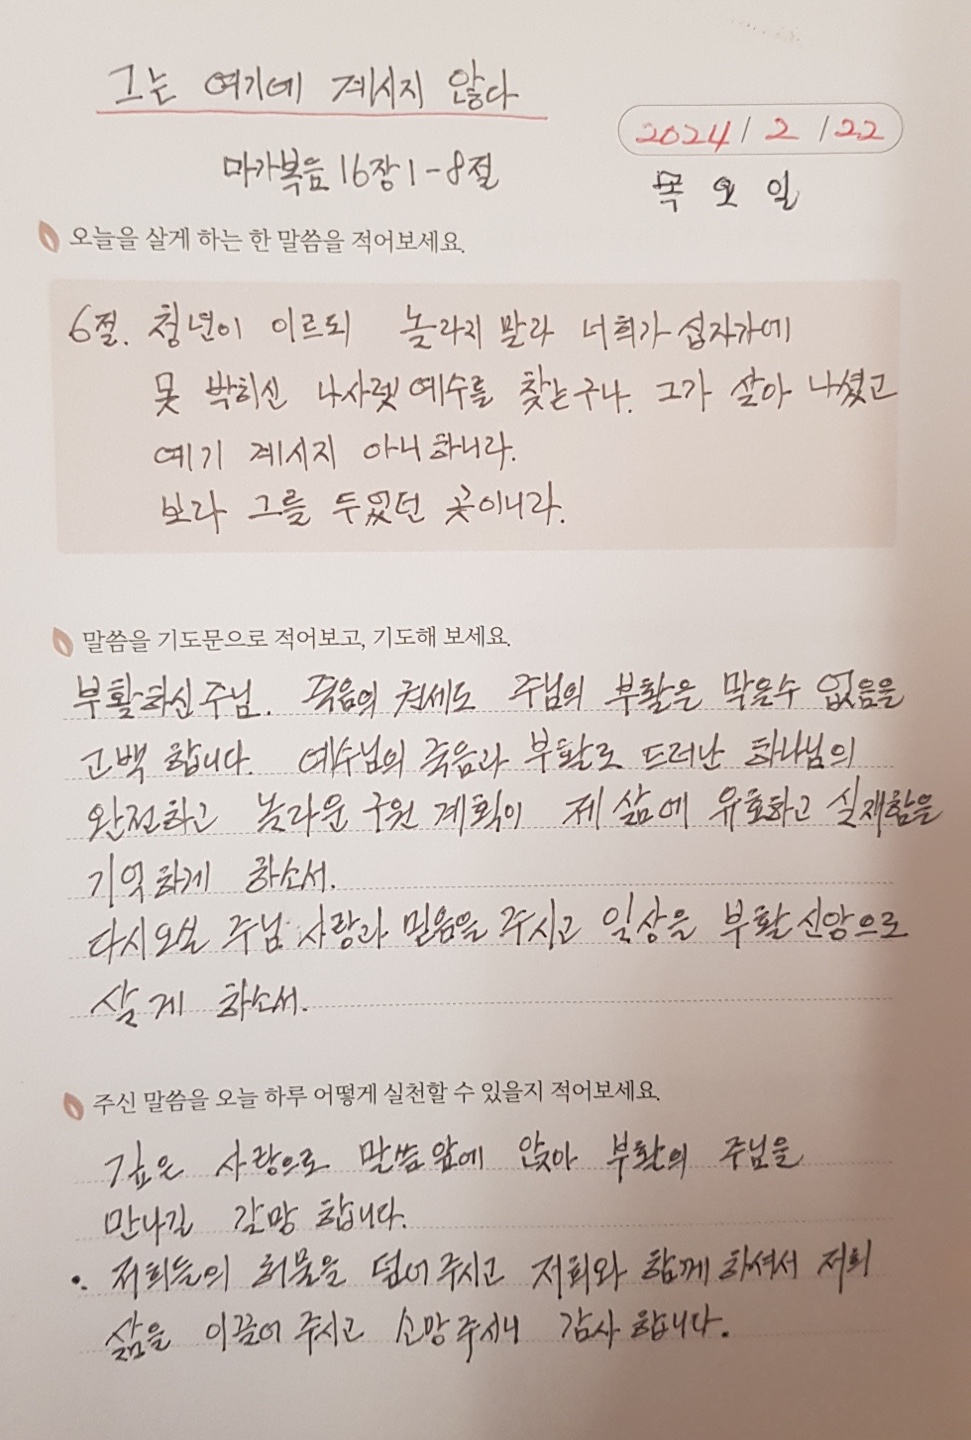 그는 여기에 계시지 않다
2024/2/22
마가복음 16장 1-8절
목요일
오늘을 살게 하는 한 말씀을 적어보세요.
6절. 청년이 이르되 놀라지 말라 너희가 십자가에
못 박히신 나사렛 예수를 찾는구나. 그가 살아 나셨고
여기 계시지 아니하니라.
보라 그를 두었던 곳이니라.
말씀을 기도문으로 적어보고, 기도해 보세요.
부활하신 주님. 죽음의 권세도 주님의 부활은 막을수 없음을
고백 합니다. 예수님의 죽음과 부활로 드러난 하나님의
완전하고 놀라운 구원 계획이 제 삶에 유효하고 실재함을
기억하게 하소서.
다시오실 주님 사랑과 믿음을 주시고 일상을 부활 신앙으로
살게 하소서.
주신 말씀을 오늘 하루 어떻게 실천할 수 있을지 적어보세요.
깊은 사랑으로 말씀 앞에 앉아 부활의 주님을
만나길 갈망 합니다.
• 저희들의 허물을 덮어 주시고 저희와 함께 하셔서 저희
삶을 이끌어 주시고 소망주시니 감사 합니다.